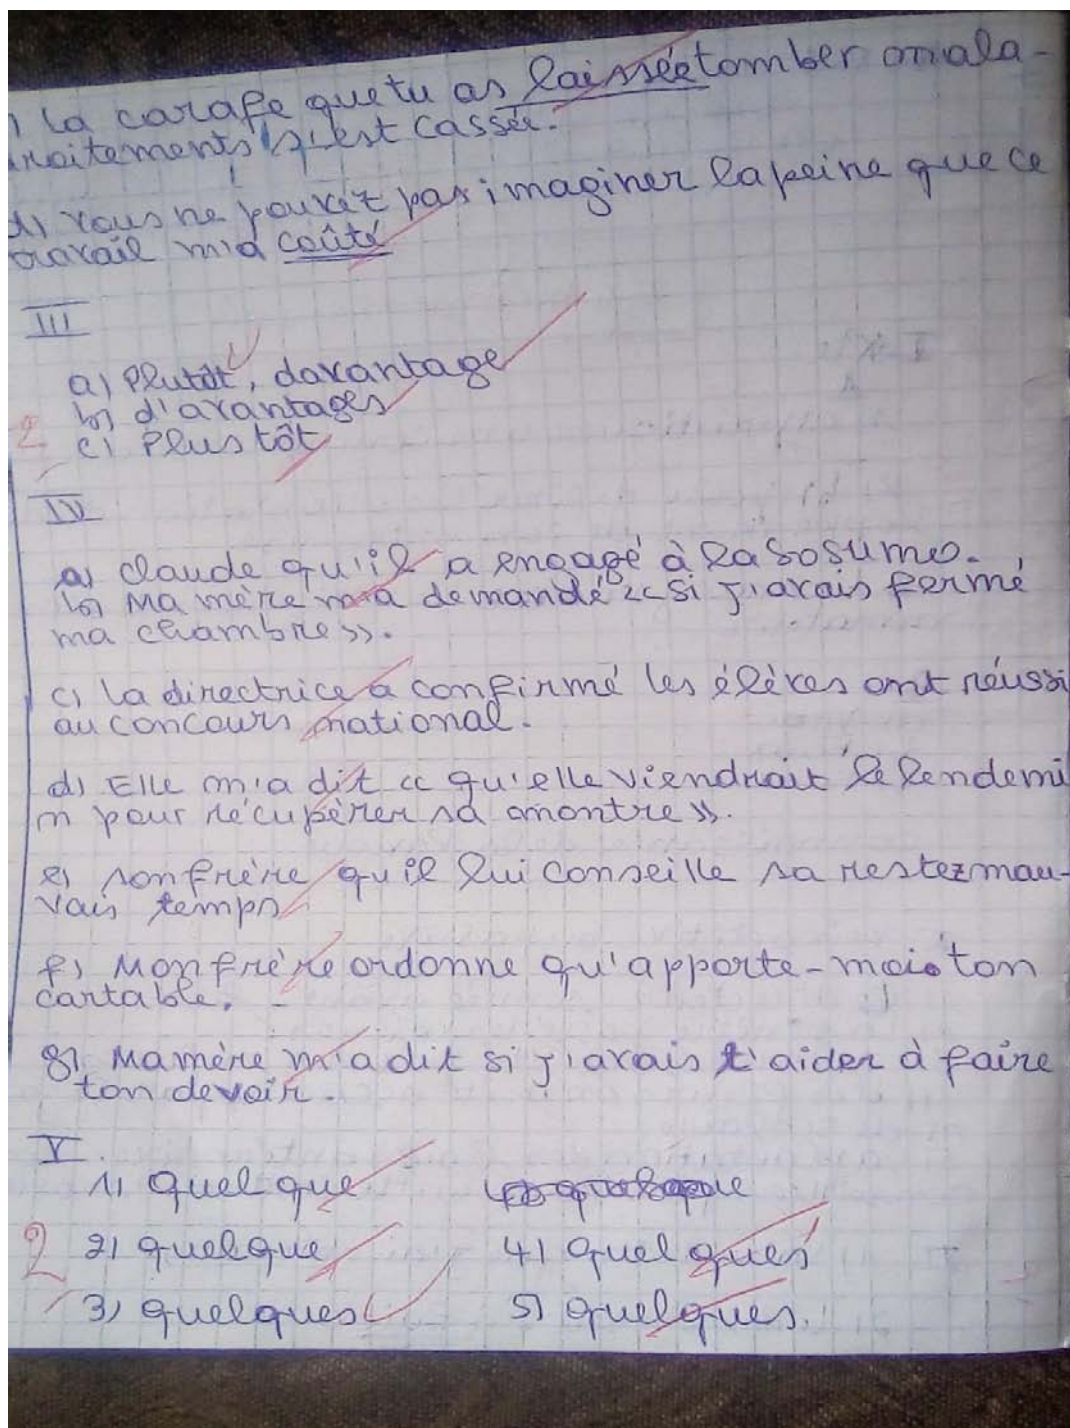 ) La carafe que tu as laissée tomber mala-
roitements s'est cassée.
d) vous ne pouvez pas imaginer la peine que ce
travail m'a coûté
III
a) Plutôt, davantage
b) d'avantages
2
c) Plus tôt
IV
a) Claude qu'il a engagé à la Sosumo.
b) Ma mère m'a demandé << si j'avais fermé
ma chambre >>.
c) La directrice a confirmé les élèves ont réussi
au concours national.
d) Elle m'a dit << qu'elle viendrait le lendemi
n pour récupérer sa montre >>.
e) son frère qu'il lui conseille sa restez mau-
vais temps
f) Mon frère ordonne qu'apporte-mois ton
cartable.
g) Ma mère m'a dit si j'avais t'aider à faire
ton devoir.
V
1) quel que
2
2) quelque 4) quel ques
3) quelques 5) quelques.